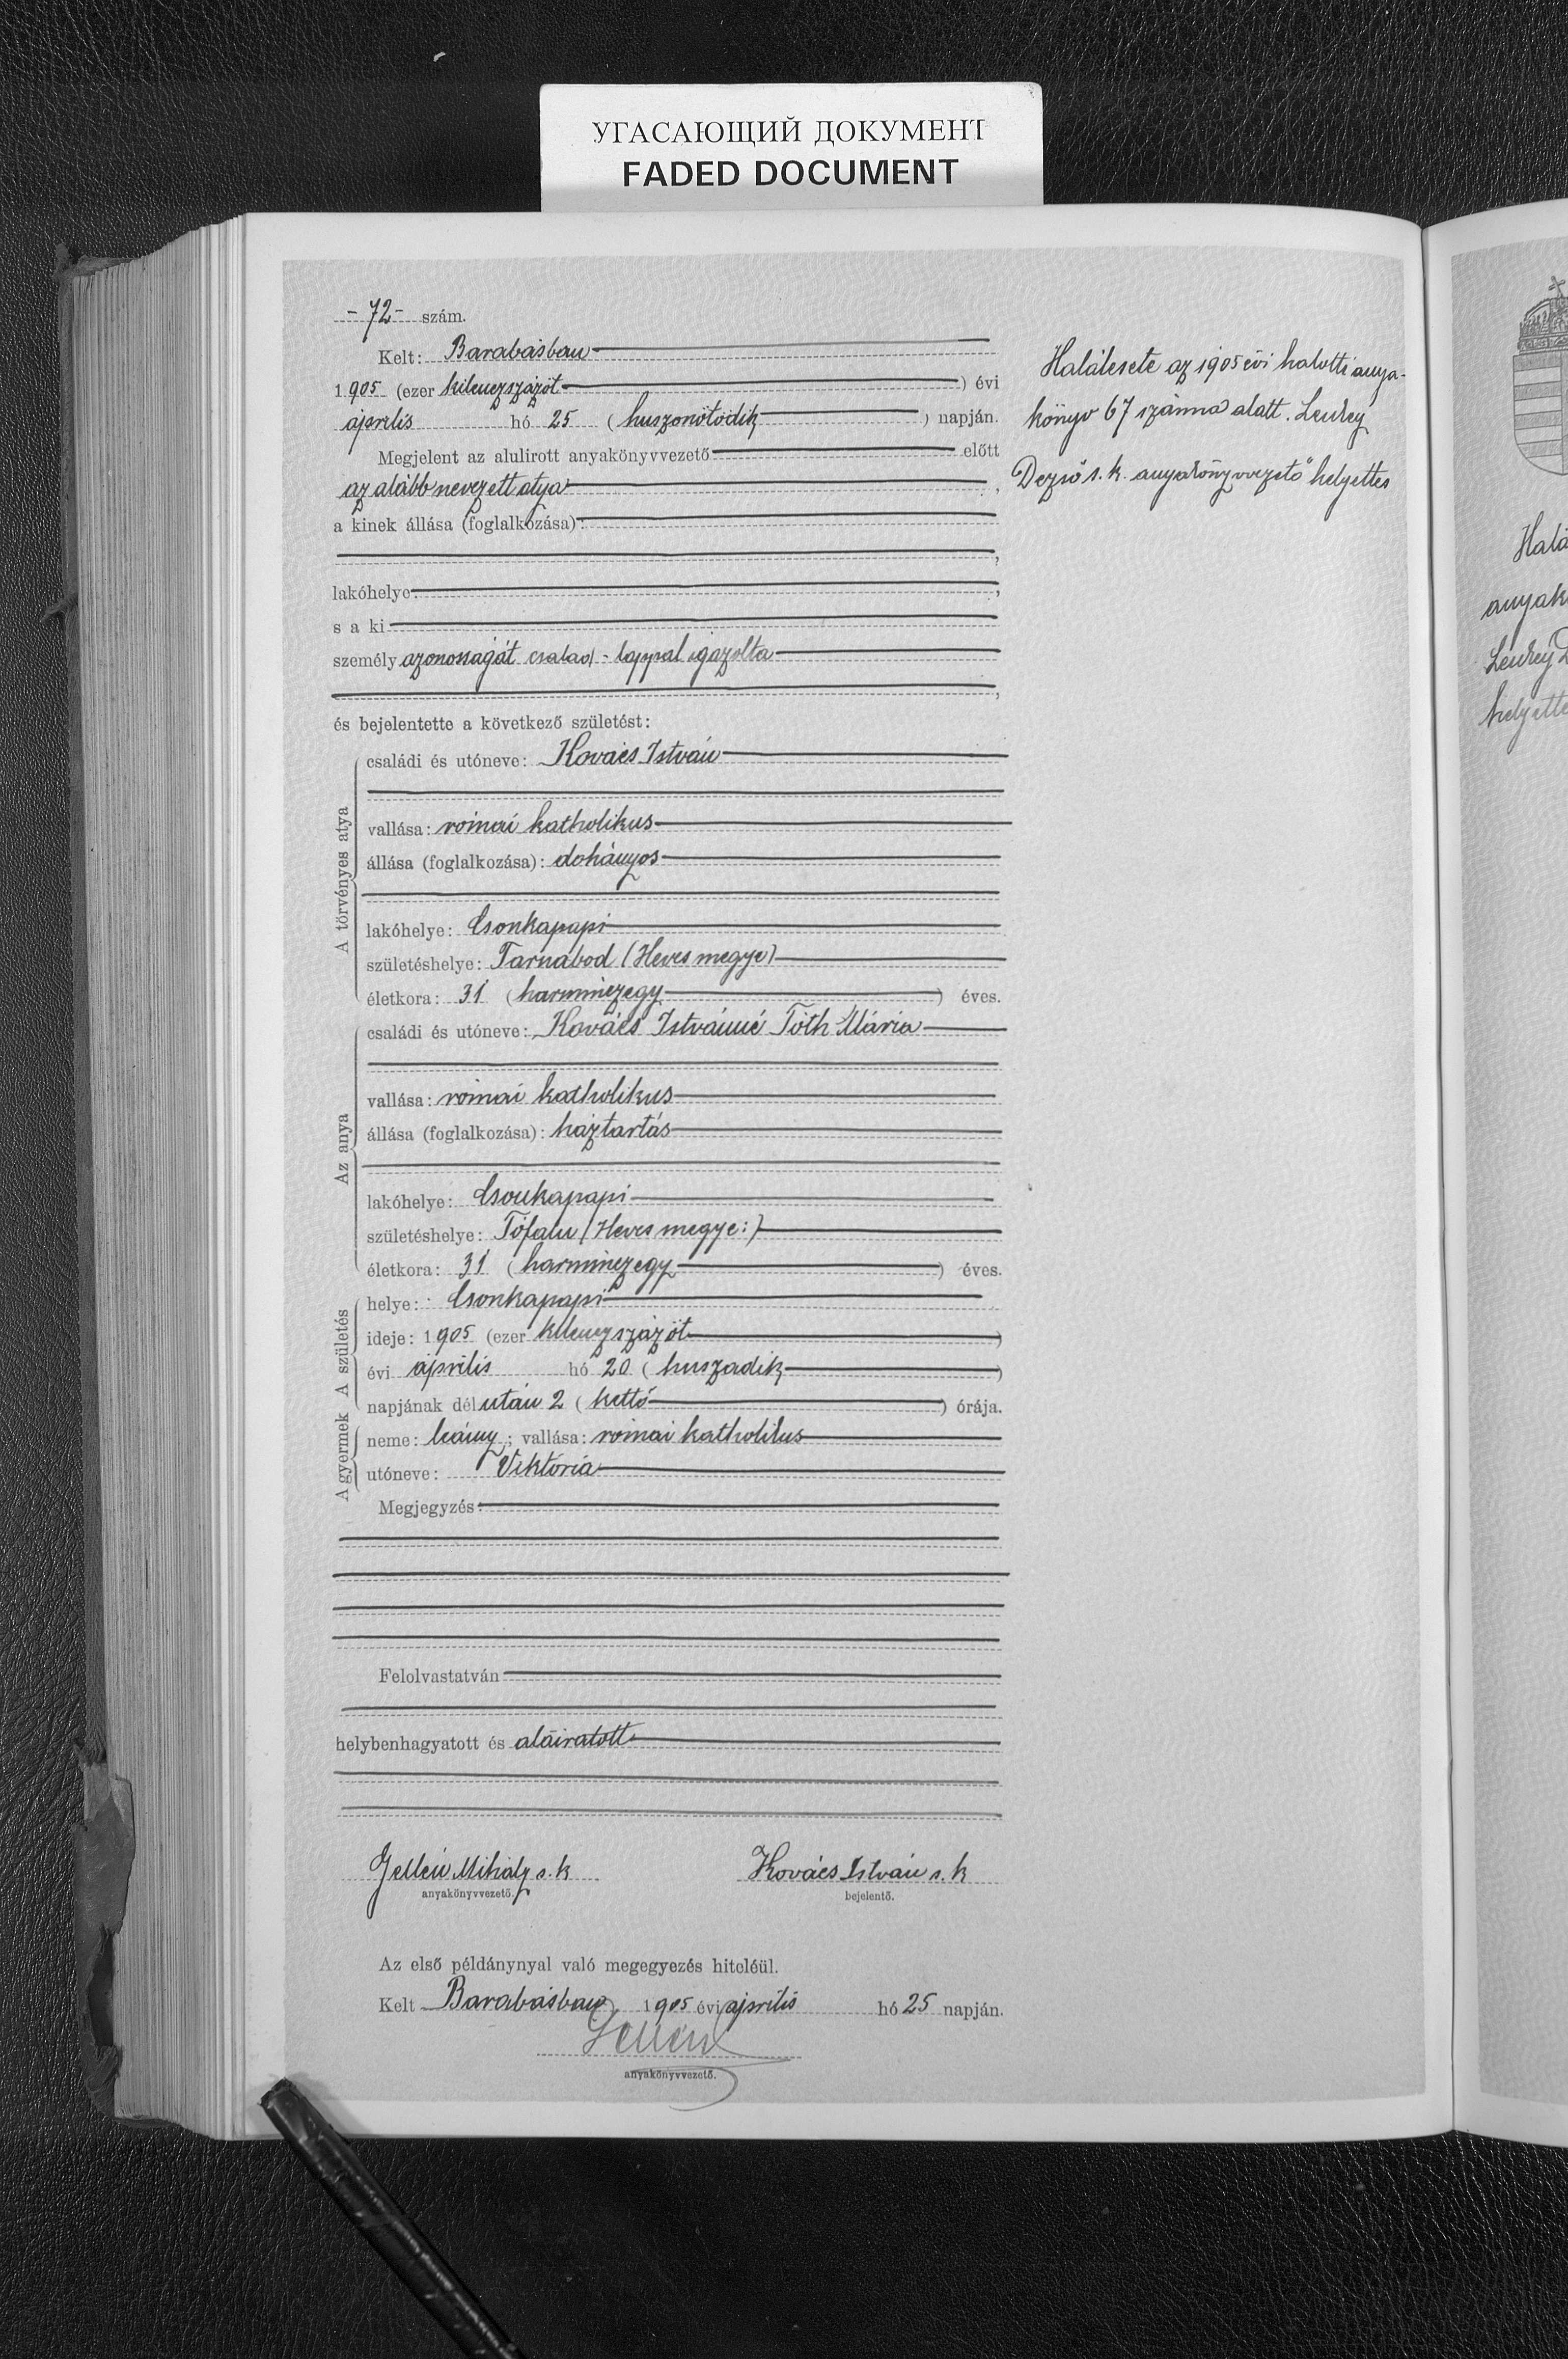 УГАСАЮЩИЙ ДОКУМЕНТ
FADED DOCUMENT
- 72 - szám.
Kelt: Barabásban
1905 (ezer kilenczszázöt) évi
április hó 25 (huszonötödik) napján.
Megjelent az alulirott anyakönyvvezető előtt
az alább nevezett atya,
a kinek állása (foglalkozása):
lakóhelye
s a ki
személyazonosságát család-lappal igazolta
és bejelentette a következő születést:
A törvényes atya
családi és utóneve: Kovács István
vallása: római katholikus
állása (foglalkozása): dohányos
lakóhelye: Csonkapapi
születéshelye: Tarnabod (Heves megye)
életkora: 31 (harminczegy) éves.
Az anya
családi és utóneve: Kovács Istvánné Tóth Mária
vallása: római katholikus
állása (foglalkozása): háztartás
lakóhelye: Csonkapapi
születéshelye: Tófalu (Heves megye:)
életkora: 31 (harminczegy) éves.
A születés
helye: Csonkapapi
ideje: 1905 (ezer kilenczszázöt)
évi április hó 20 (huszadik)
napjának délután 2 (kettő) órája.
A gyermek
neme: leány; vallása: római katholikus
utóneve: Viktória
Megjegyzés:
Felolvastatván
helybenhagyatott és aláiratott
Gellén Mihály s. k
anyakönyvvezető.
Kovács István s. k
bejelentő.
Az első példánynyal való megegyezés hiteléül.
Kelt Barabásban 1905 évi április hó 25 napján.
Gellén
anyakönyvvezető.
Halálesete az 1905 évi halotti anya-
könyv 67 száma alatt.
Dezső s. k. anyakönyvvezető helyettes
Halá
anyak
helyette